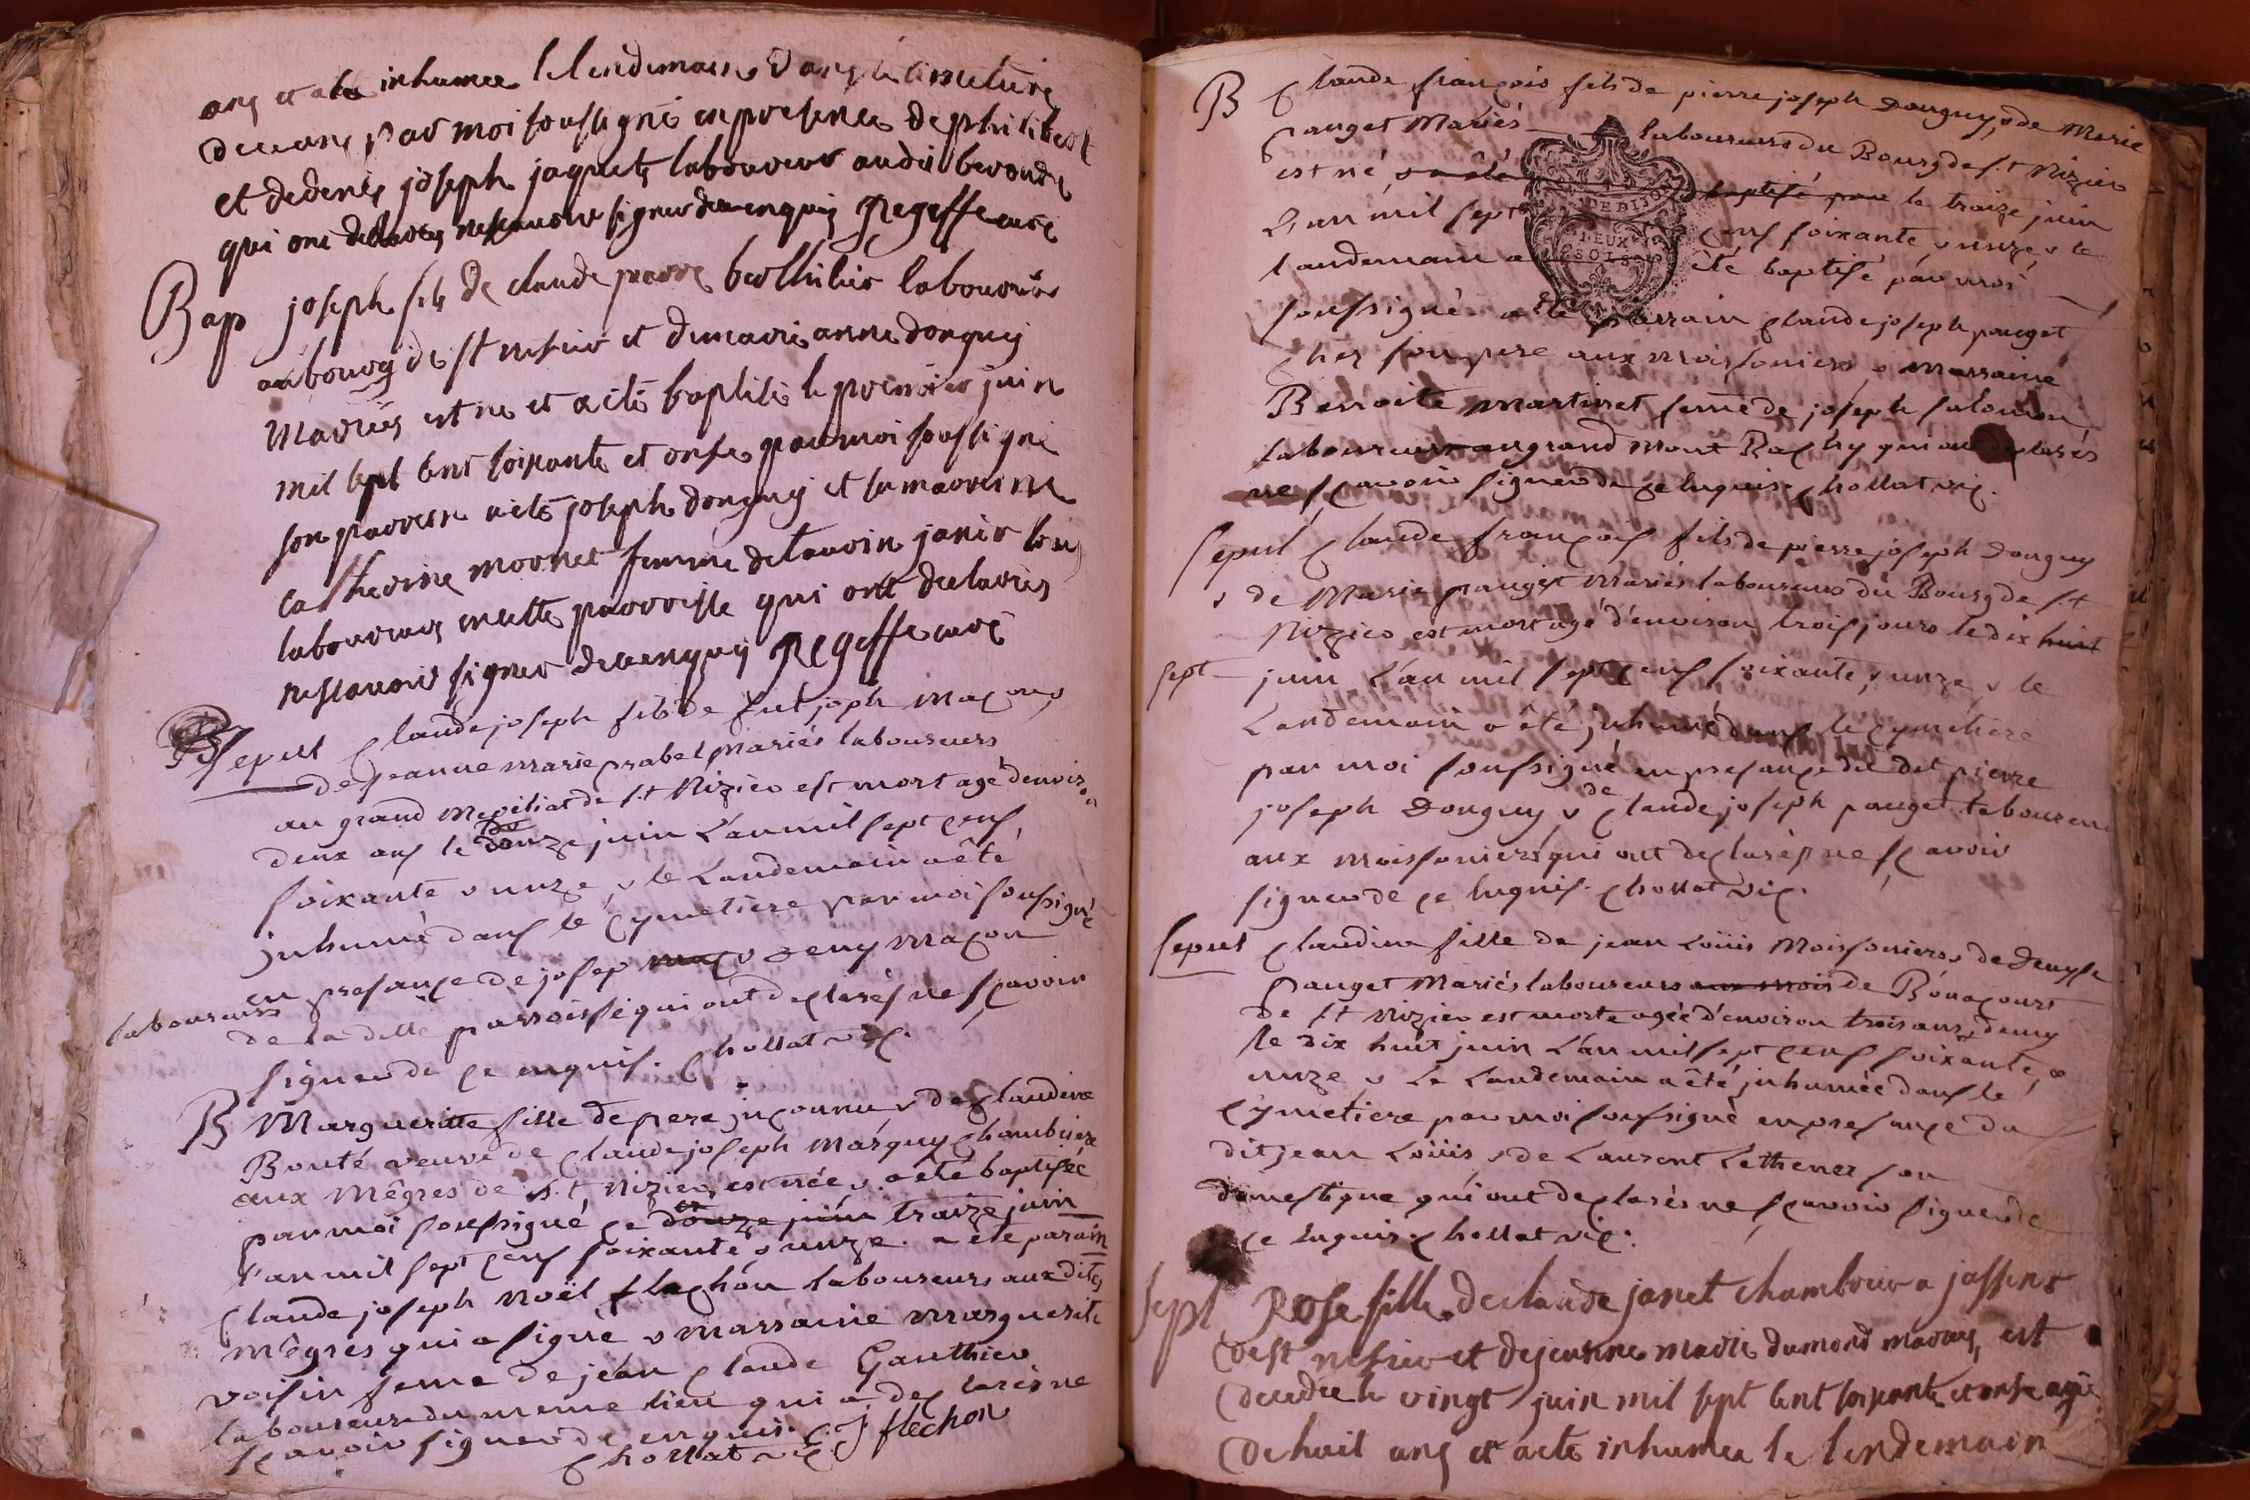 ans et a ete inhumee le lendemain dans le cimetiere
de ceans par moi soussigné en presence de philibert
et de denis joseph jaquet laboureur audit
qui ont declarés ne scavoir signer de ce enquis Regeffe curé
Bap joseph fils de claude pierre berthilier laboureur
au bourg de st nesier et de marie anne donguy
Mariés est né et a été baptisé le premier juin
mil sept cent soixante et onse par moi soussigné
son parrein a eté joseph donguy et sa marreine
Catherine mornet femme de
laboureurs en cette parroisse qui ont declarés
ne scavoir signer de ce enquis Regeffe curé
Sepul Claude joseph fils de fut joph maçon, &
de jeanne marie prabel mariés laboureurs
au grand de St Nizier est mort agé d'environ
deux ans le douze juin L'an mil sept cens
soixante & unze, & le Landemain a êté
juhumé dans le Cymetiere par moi soussigné
en presance de josep & Deny maçon
laboureurs
de la dite parroisse qui ont declarés ne sçavoir
signer de ce enquis. Chollat vic.
B Margueritte fille de pere inconnu & de Claudine
Bonté veuve de Claude joseph marguy chambriere
aux Mêgres de St Nizier, est née & a eté baptisée
par moi soussigné ce douze juin traize juin
l'an mil sept cens soixante & unze. a eté parain
Claude joseph Noël flechon laboureurs aux dites
mêgres qui a signé & marraine marguerite
voisin feme de jean Claude Gauthier
laboureur du meme lieu qui a declarés ne
sçavoir signer de ce enquis. J flechon
Chollat vic
B Claude françois fils de pierre joseph Donguy, & de Marie
pauget Mariés laboureurs du Bourg de St Nizier
est né, & a été baptisé par le traize juin
L'an mil sept cens soixante & unze & le
landemain a été baptisé par moi
soussigné a eté parrain Claude joseph pauget
chez son pere aux moissoniers & marraine
Benoite martinet feme de joseph salomon
laboureurs au grand mont Rachy qui ont declarés
ne sçavoir signer de ce enquis Chollat vic.
Sepul Claude françois fils de pierre joseph Donguy
& de Marie pauget mariés laboureurs du Bourg de St
Nizier est mort agé d'environ trois jours le dix huit
sept juin L'an mil sept cens soixante, & unze & le
Landemain a été juhumé dans le cymetiere
par moi soussigné en presance du dit pierre
joseph Donguy & de Claude joseph pauget laboureur
aux moissoniers qui ont declarés ne sçavoir
signer de ce enquis. Chollat vic.
Sepul Claudine fille de jean Loüis Moissoniers & de denyse
pauget Mariés laboureurs aux mois de
de St Nizier est morte agée d'environ trois ans & demy
le dix huit juin L'an mil sept cens soixante, &
unze & Le Landemain a êté juhumée dans le
Cymetiere par moi soussigné en presance du
dit jean Loüis & de Laurent Lethenet son
domestique qui ont declarés ne sçavoir signer de
ce enquis Chollat vic.
Sepl Rose fille de claude janet chambour a jassens
de st nesier et de jeanne marie dumond maries, est
decedee le vingt juin mil sept cent soixante et onse agée
de huit ans et a ete inhumee le lendemain